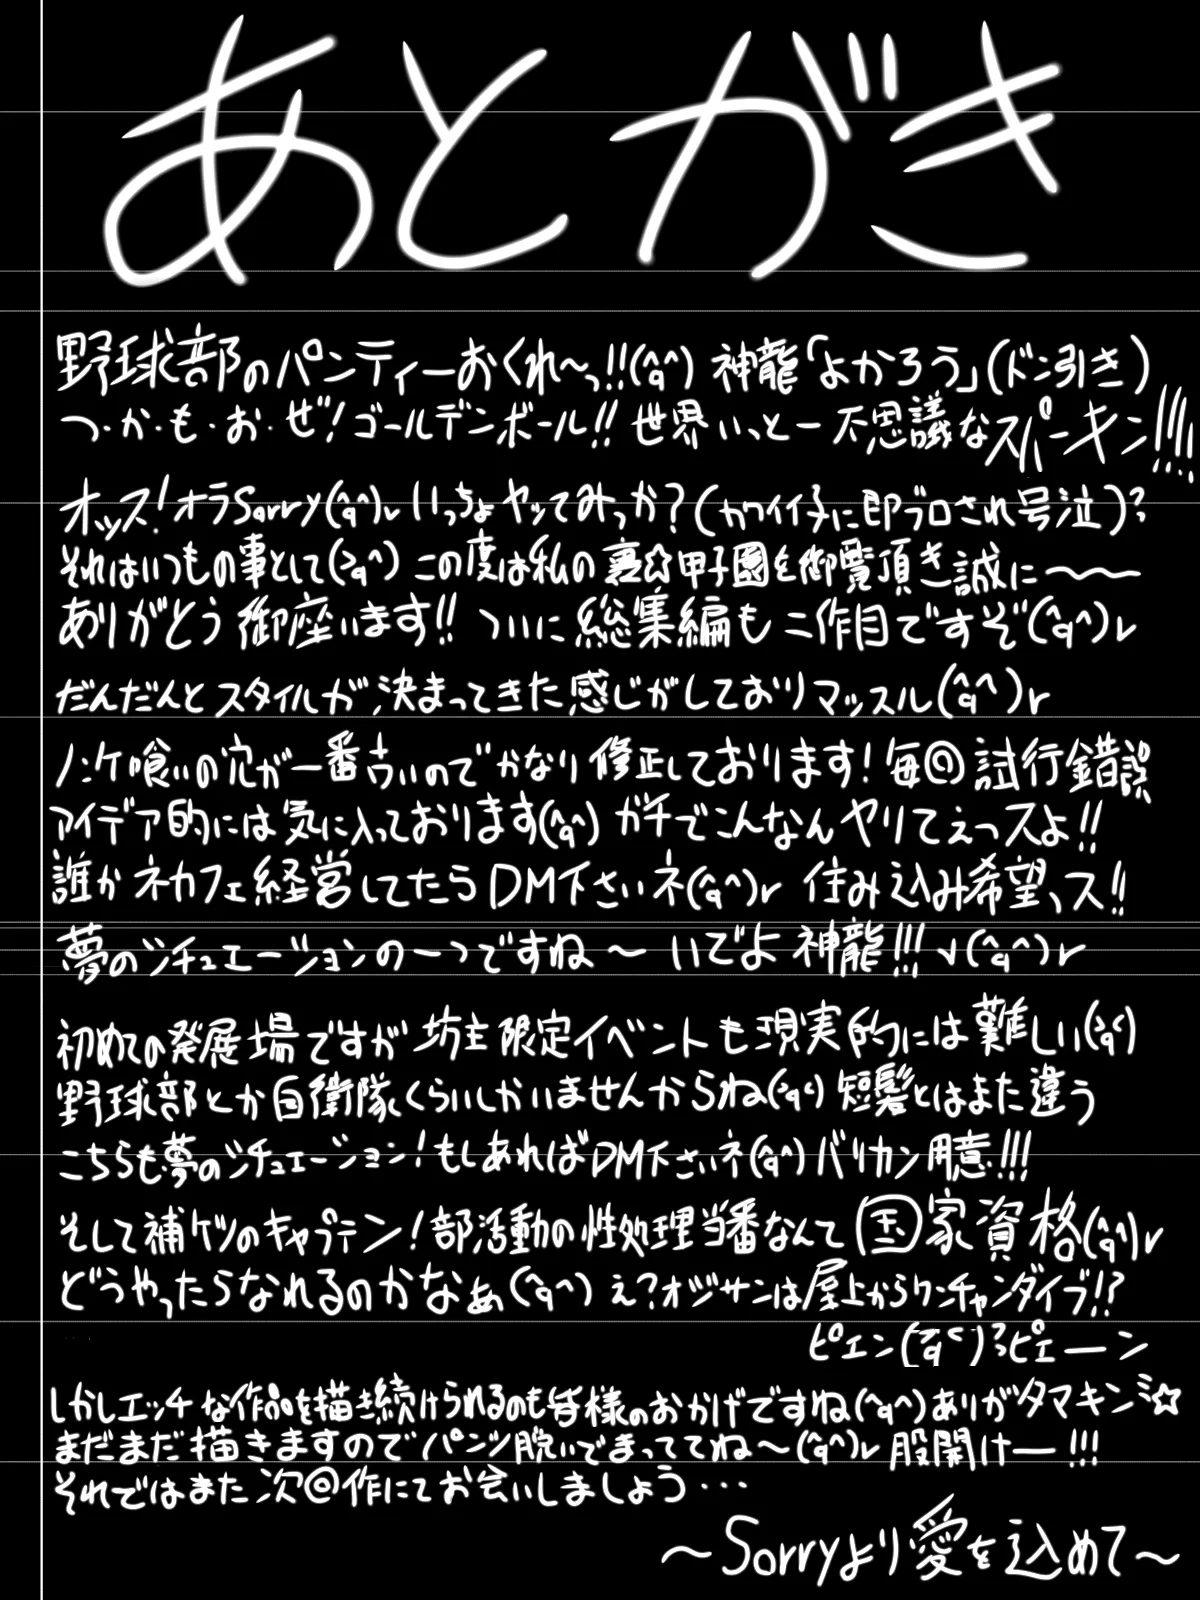 あとがき
野球部のパンティーおくれ〜っ!!(^q^) 神龍「よかろう」(ドン引き)
つ・か・も・お・ぜ!ゴールデンボール!!世界いっと一不思議なスパーキン!!!
オッス!オラSorry(^q^)r いっちょヤッてみっか?(カワイイ子に即ブロされ号泣)?
それはいつもの事として(>q^) この度は私の裏☆甲子園を御覧頂き誠に〜〜
ありがとう御座います!!ついに総集編も二作目ですぞ(^q^)r
だんだんとスタイルが決まってきた感じがしておりマッスル(^q^)r
ノンケ喰いの穴が一番古いのでかなり修正しております!毎回試行錯誤
アイデア的には気に入っております(^q^) ガチでこんなんヤリてぇっスよ!!
誰かネカフェ経営してたらDM下さいネ(^q^)r 住み込み希望ッス!!
夢のシチュエーションの一つですね〜 いでよ神龍!!!ヽ(^q^)r
初めての発展場ですが坊主限定イベントも現実的には難しい(>q<)
野球部とか自衛隊くらいしかいませんからね(>q<)短髪とはまた違う
こちらも夢のシチュエーション!もしあればDM下さいネ(^q^)バリカン用意!!!
そして補ケツのキャプテン!部活動の性処理当番なんて国家資格(^q^)r
どうやったらなれるのかなぁ(^q^) え?オジサンは屋上からワンチャンダイブ!?
ピエン(>q<)?ピエーン
しかしエッチな作品を描き続けられるのも皆様のおかげですね(^q^)ありがタマキンミ☆
まだまだ描きますのでパンツ脱いでまっててね〜(^q^)r 股開けー!!!
それではまた次回作にてお会いしましょう・・・
〜Sorryより愛を込めて〜